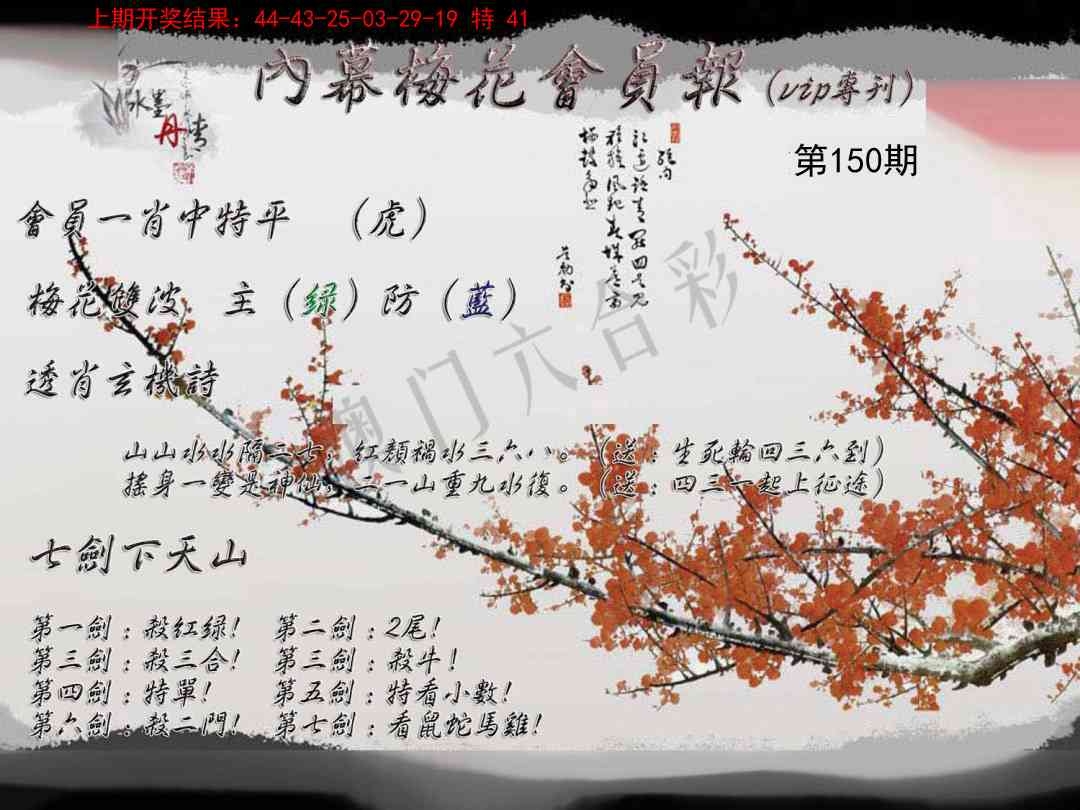 上期开奖结果：44-43-25-03-29-19 特 41
內幕梅花會員報（vip專刊）
水墨
丹情
第150期
會員一肖中特平 （虎）
梅花雙波 主（绿）防（藍）
透肖玄機詩
澳门六合彩
山山水水隔二七，红顏禍水三六八。（送：生死輪回三六到）
搖身一變是神仙，二一山重九水復。（送：四三一起上征途）
七劍下天山
第一劍：殺红绿！ 第二劍：2尾！
第三劍：殺三合！ 第三劍：殺牛！
第四劍：特單！ 第五劍：特看小數！
第六劍：殺二門！ 第七劍：看鼠蛇馬雞！